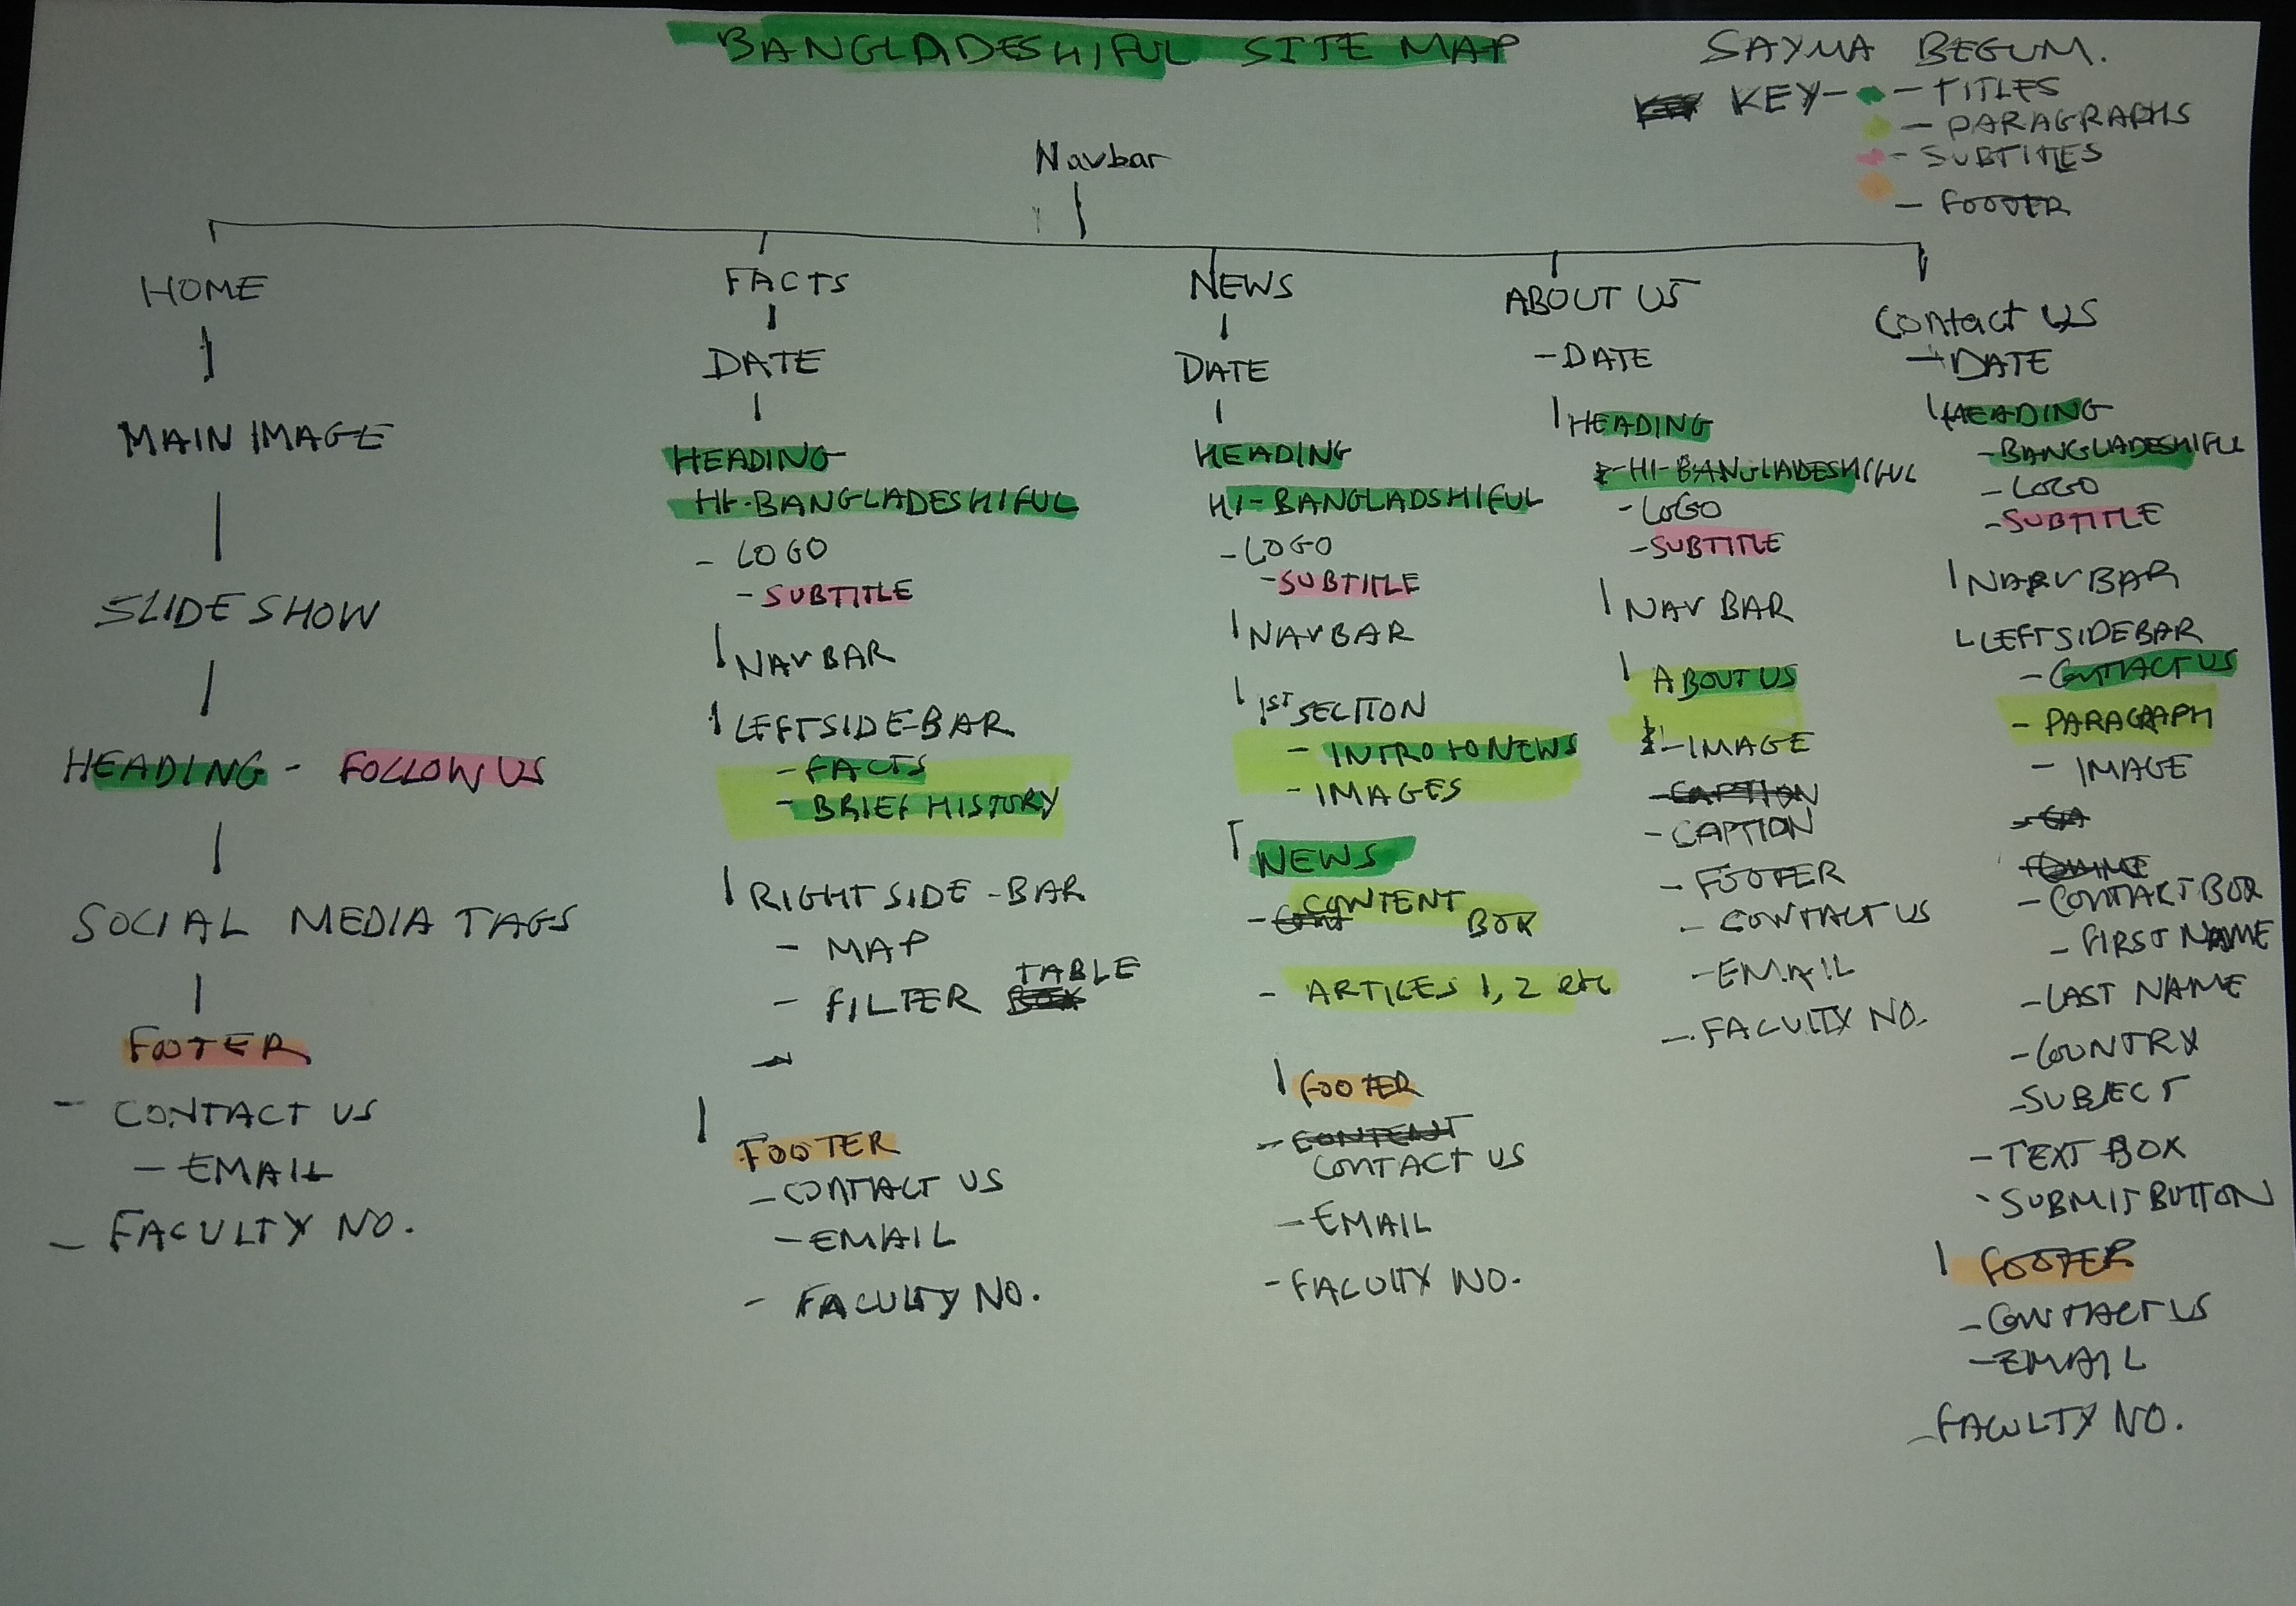 BANGLADESHIFUL SITE MAP
SAYMA BEGUM.
KEY - - TITLES
- PARAGRAPHS
- SUBTITLES
- FOOTER
Navbar
HOME
MAIN IMAGE
SLIDE SHOW
HEADING - FOLLOW US
SOCIAL MEDIA TAGS
FOOTER
- CONTACT US
- EMAIL
- FACULTY NO.
FACTS
DATE
HEADING
H1-BANGLADESHIFUL
- LOGO
- SUBTITLE
NAVBAR
LEFTSIDE-BAR
- FACTS
- BRIEF HISTORY
RIGHTSIDE-BAR
- MAP
- FILTER TABLE
FOOTER
- CONTACT US
- EMAIL
- FACULTY NO.
NEWS
DATE
HEADING
H1-BANGLADSHIFUL
- LOGO
- SUBTITLE
NAVBAR
1ST SECTION
- INTRO TO NEWS
- IMAGES
NEWS
- CONTENT BOX
- ARTICLES 1, 2 etc
FOOTER
- CONTENT
CONTACT US
- EMAIL
- FACULTY NO.
ABOUT US
- DATE
HEADING
- H1-BANGLADESHIFUL
- LOGO
- SUBTITLE
NAV BAR
ABOUT US
- IMAGE
- CAPTION
- CAPTION
- FOOTER
- CONTACT US
- EMAIL
- FACULTY NO.
Contact US
- DATE
HEADING
- BANGLADESHIFUL
- LOGO
- SUBTITLE
NAV BAR
LEFTSIDEBAR
- CONTACT US
- PARAGRAPH
- IMAGE
- CONTACT BOX
- FIRST NAME
- LAST NAME
- COUNTRY
- SUBJECT
- TEXT BOX
- SUBMIT BUTTON
FOOTER
- CONTACT US
- EMAIL
- FACULTY NO.